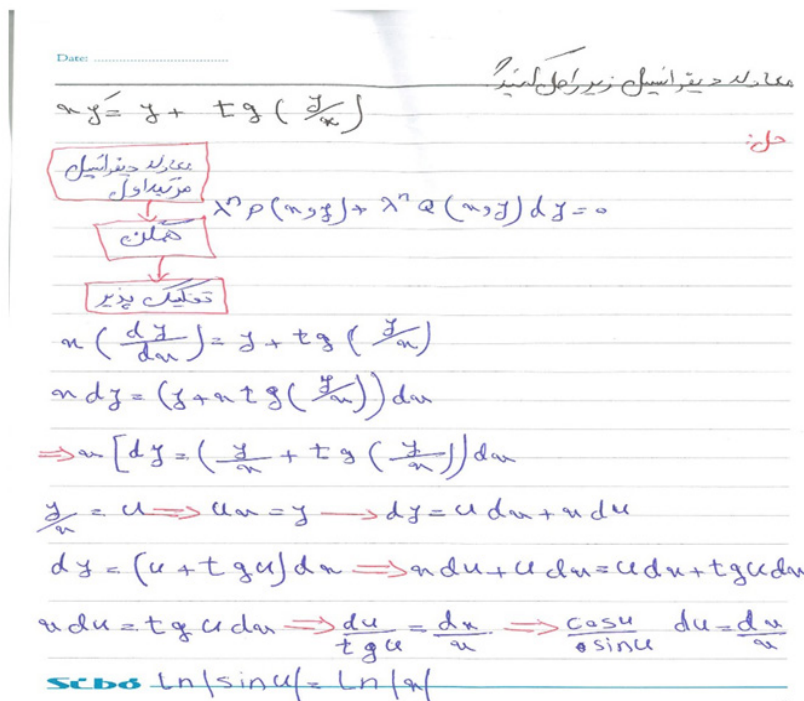 Date:
معادله دیفرانسیل زیر را حل کنید؟
xy′ = y + tg(y/x)
حل:
معادله دیفرانسیل
مرتبه اول
λⁿP(x,y) + λⁿQ(x,y)dy = 0
همگن
تفکیک پذیر
x(dy/dx) = y + tg(y/x)
xdy = (y + xtg(y/x))dx
⇒ x[dy = (y/x + tg(y/x))dx
y/x = u ⇒ ux = y → dy = udx + xdu
dy = (u + tgu)dx ⇒ xdu + udx = udx + tgudx
xdu = tgudx ⇒ du/tgu = dx/x ⇒ cosu/sinu du = dx/x
Ln|sinu| = Ln|x|